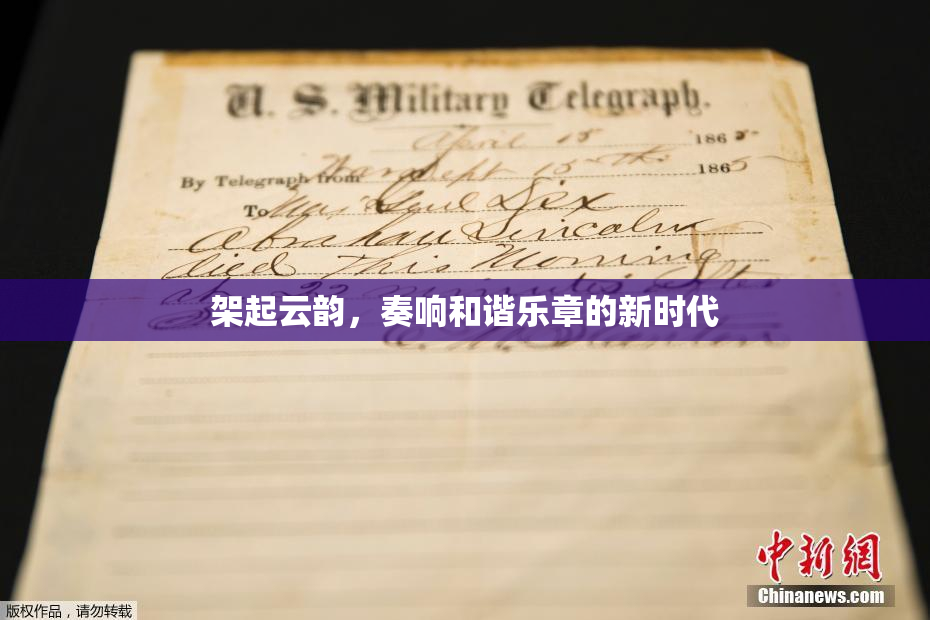 U. S. Military Telegraph.
April 15 1865
By Telegraph from War Dept 15th 1865
To Maj Genl Dix
Abraham Lincoln
died This Morning
at 22 minutes after
架起云韵，奏响和谐乐章的新时代
中新網
Chinanews.com
版权作品，请勿转载